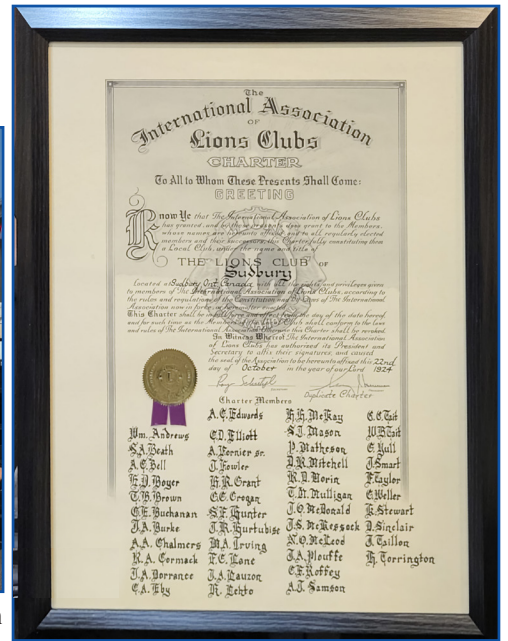 The
International Association
OF
Lions Clubs
CHARTER
To All to Whom These Presents Shall Come:
GREETING
Know Ye that The International Association of Lions Clubs
has granted, and by these presents does grant to the Members,
whose names are hereunto affixed, and to all regularly elected
members and their successors, this Charter fully constituting them
a Local Club, under the name and title of
THE LIONS CLUB OF
Sudbury
Located at Sudbury Ont Canada with all the rights and privileges given
to members of The International Association of Lions Clubs, according to
the rules and regulations of the Constitution and By-Laws of The International
Association now in force, or hereafter
This Charter shall be in full force and effect from the day of the date hereof,
and for such time as the Members of this Club shall conform to the laws
and rules of The International Association, otherwise this Charter shall be revoked.
In Witness Whereof The International Association
of Lions Clubs has authorized its President and
Secretary to affix their signatures, and caused
the seal of the Association to be hereunto affixed this 22nd
day of October in the year of our Lord 1924
Duplicate Charter
Charter Members
Wm. Andrews
S.A. Beath
A.E. Bell
E.D. Boyer
T.B. Brown
O.E. Buchanan
J.A. Burke
A.A. Chalmers
R.A. Cormack
J.A. Dorrance
C.A. Eby
A.C. Edwards
C.D. Elliott
A. Fornier sr.
J. Fowler
H.R. Grant
C.E. Grogan
S.F. Hunter
J.R. Hurtubise
M.A. Irving
F.C. Lane
J.A. Lauzon
R. Lehto
H.H. McKay
S.J. Mason
P. Matheson
D.R. Mitchell
R.D. Morin
T.M. Mulligan
J.O. McDonald
J.S. McKessock
N.O. McLeod
J.A. Plouffe
C.E. Roffey
A.J. Samson
C.C. Tait
W.B. Tait
E. Yull
J. Smart
F. Taylor
G. Weller
K. Stewart
D. Sinclair
J. Taillon
H. Torrington